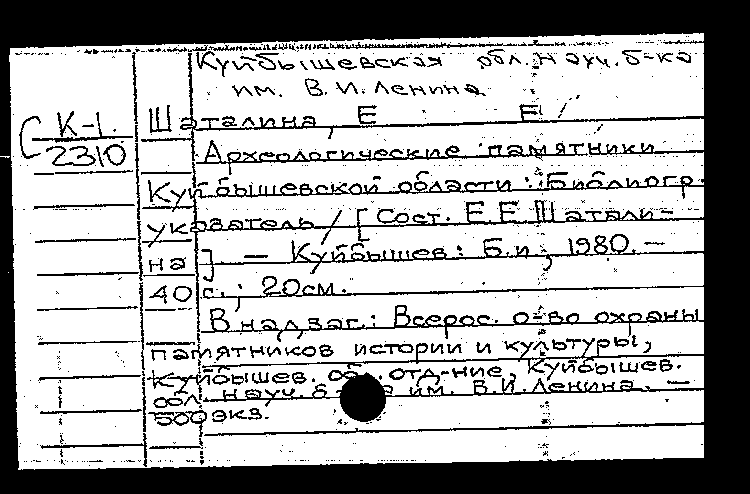 Куйбышевская обл. науч. б-ка
им. В.И. Ленина
С К-1.
2310
Шаталина, Е Е
Археологические памятники
Куйбышевской области : Библиогр.
указатель / [Сост. Е.Е. Шатали-
на]. — Куйбышев : Б.и., 1980. —
40 с. ; 20см.
В надзаг.: Всерос. о-во охраны
памятников истории и культуры,
Куйбышев. обл. отд-ние, Куйбышев.
обл. науч. б-ка им. В.И. Ленина. —
500 экз.